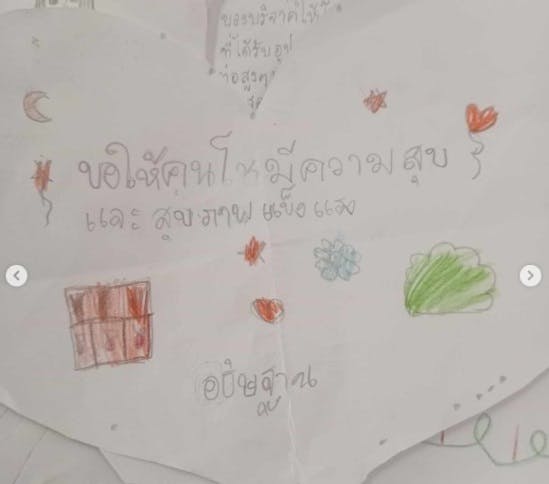 ของบริจาคให้
ที่ได้รับ
ขอให้คุณโชมีความสุข
และสุขภาพแข็งแรง
อธิษฐาน